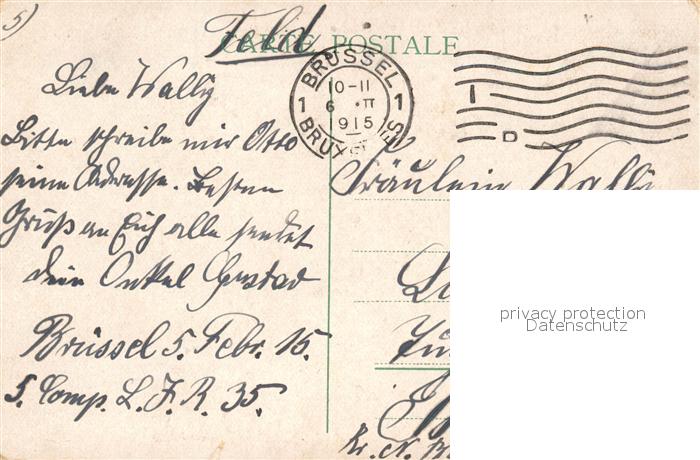 5)
Feld
CARTE POSTALE
BRÜSSEL
10-11
1 6 II 1
1915
BRUXELLES
Liebe Wally
Bitte schreibe mir Otto
seine Adresse. Besten
Gruß an Euch alle sendet
dein Onkel Gustav
Brüssel 5. Febr. 15.
5. Comp. L. J. R. 35.
Fräulein Wally
privacy protection
Datenschutz